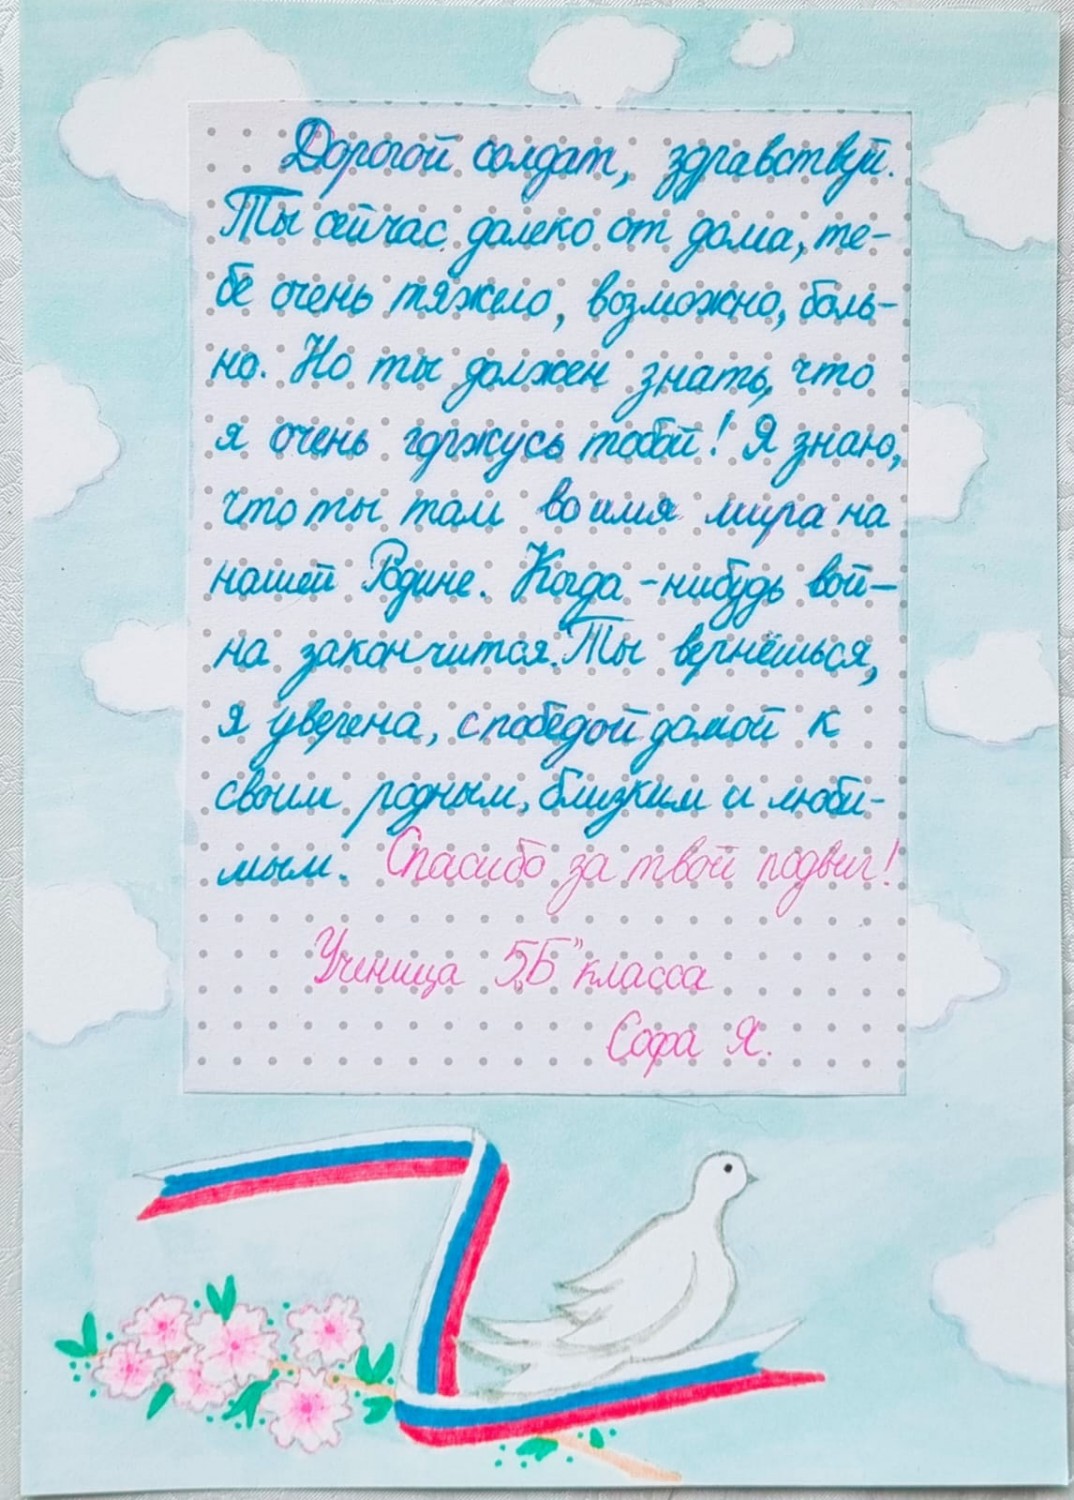 Дорогой солдат, здравствуй.
Ты сейчас далеко от дома, те-
бе очень тяжело, возможно, боль-
но. Но ты должен знать, что
я очень горжусь тобой! Я знаю,
что ты там во имя мира на
нашей Родине. Когда-нибудь вой-
на закончится. Ты вернёшься,
я уверена, с победой домой к
своим родным, близким и люби-
мым. Спасибо за твой подвиг!
Ученица 5„Б" класса
Софа Я.